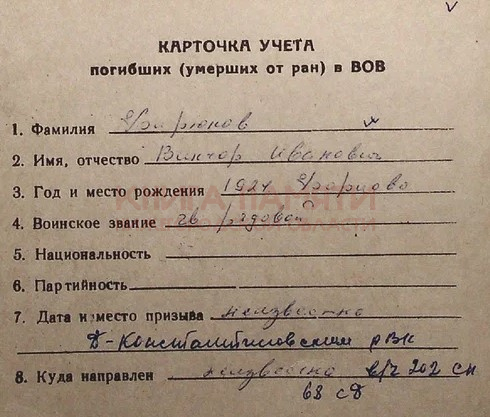 КАРТОЧКА УЧЕТА
погибших (умерших от ран) в ВОВ
1. Фамилия
2. Имя, отчество Виктор Иванович
3. Год и место рождения 1924
КНИГА ПАМЯТИ
4. Воинское звание гв рядовой
5. Национальность
6. Партийность
7. Дата и место призыва неизвестно
Д-Константиновским РВК
8. Куда направлен неизвестно в/ч 202 сп
68 сд